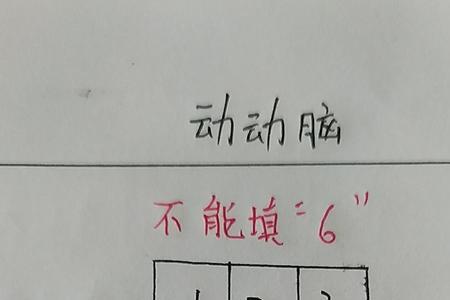 动动脑
不能填"6"